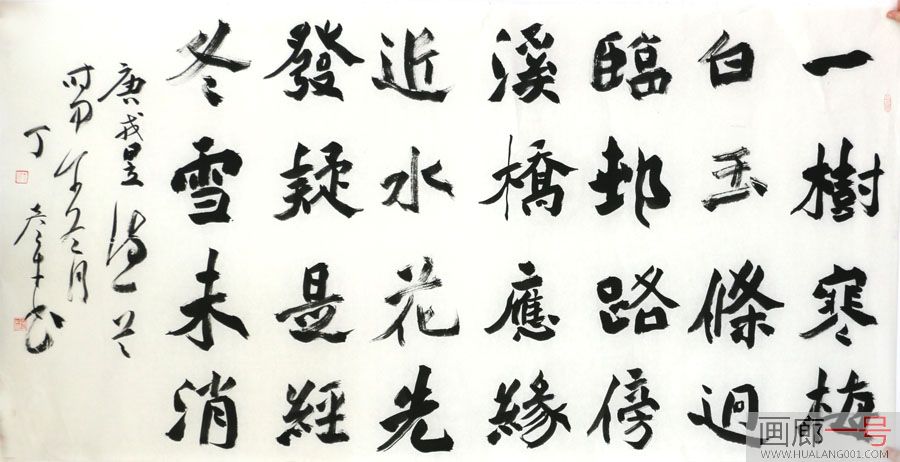 一樹寒梅
白玉條迥
臨邨路傍
溪橋應緣
近水花先
發疑是經
冬雪未消
唐戎昱詩一首
冬月
画廊一号
WWW.HUALANG001.COM